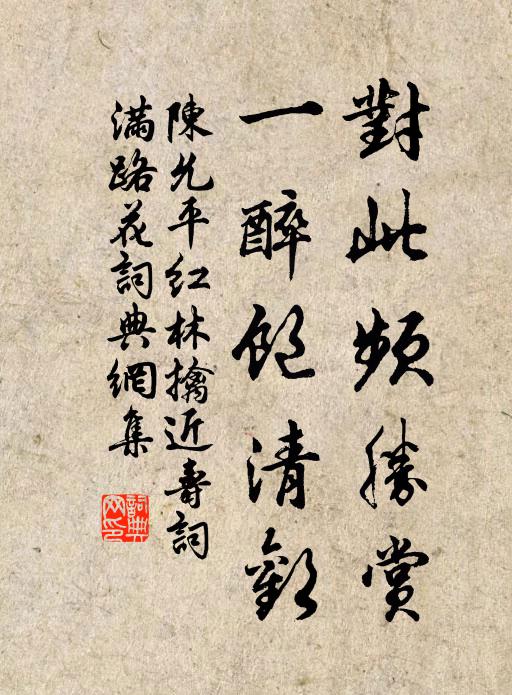 對此頻勝賞
一醉飽清歡
陳允平紅林擒近壽詞
滿路花詞典網集
詞典网印